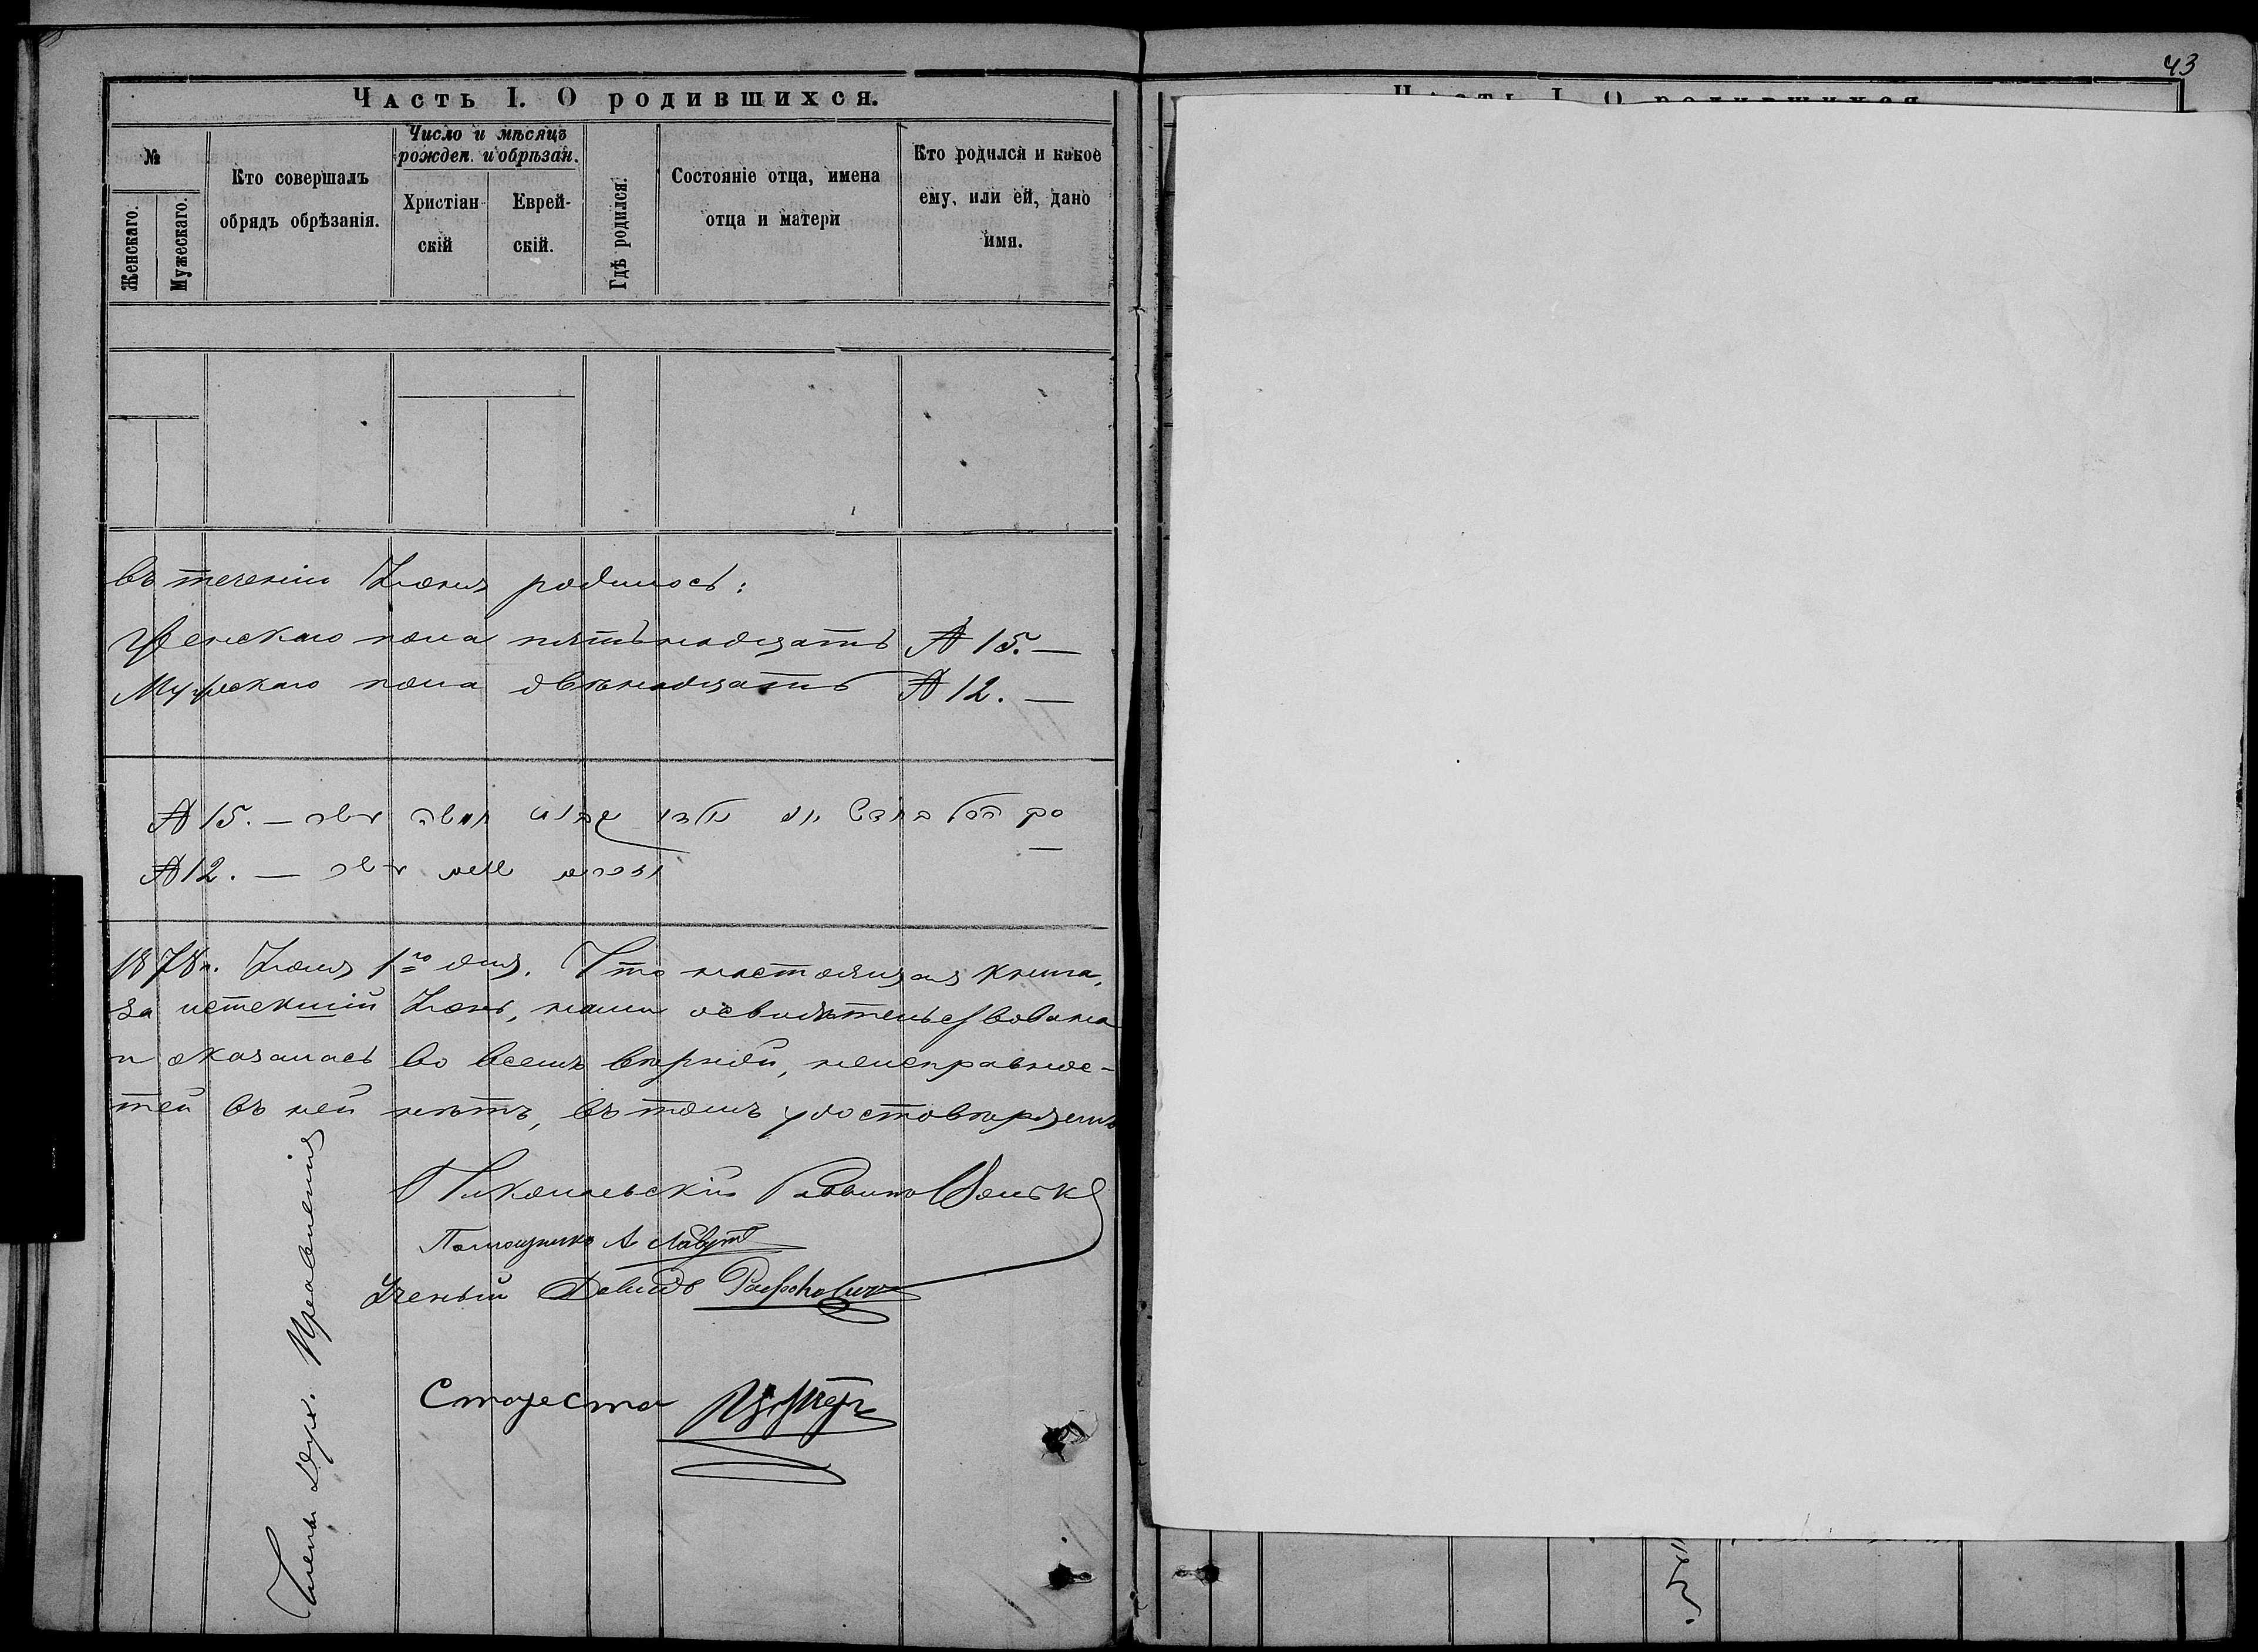 43
Часть I. О родившихся.
№
Женскаго.
Мужескаго.
Кто совершалъ
обрядъ обрѣзанія.
Число и мѣсяцъ
рожден. и обрѣзан.
Христіан-
скій
Еврей-
скій.
Гдѣ родился.
Состояніе отца, имена
отца и матери
Кто родился и какое
ему, или ей, дано
имя.
Въ теченіи Іюня родилось:
Женскаго пола пятьнадцать № 15. —
Мужескаго пола двѣнадцать № 12. —
№ 15. —
№ 12. —
1878 г. Іюля 1го дня. Что настоящая книга,
за истекшій Іюнь, нами освидѣтельствована
и оказалась во всемъ вѣрной, неисправнос-
тей въ ней нѣтъ, въ томъ удостовѣряемъ
Члены Дух. Правленія
Николаевскій Раввинъ
Помощникъ А
Ученый Давидъ
Староста
Часть I. О родившихся